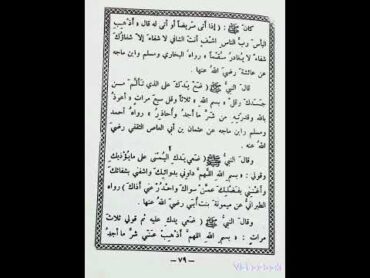 كانَ ﷺ : ( إذا أتى مريضاً أو أتي له قال « أذهب
البأسَ ربَّ الناسِ اشفِ أنتَ الشافي لا شفاءَ إلا شفاؤكَ
شفاءً لا يُغادرُ سَقَماً » رواه البخاري ومسلم وابن ماجه
عن عائشة رضيَ اللهُ عنها .
قالَ النبيُّ ﷺ ( ضعْ يدَكَ على الذي تألمَ من
جسدِك وقل « بسمِ اللهِ » ثلاثاً وقل سبعَ مراتٍ « أعوذُ
باللهِ وقدرتِهِ من شرِّ ما أجدُ وأحاذِرُ » رواه أحمد
ومسلم وابن ماجه عن عثمان بن أبي العاص الثقفي رضيَ
اللهُ عنه .
وقالَ النبيُّ ﷺ ( ضعي يدكِ اليُمنى على ما يؤذيكِ
وقولي : « بسمِ اللهِ اللهمَّ داوِني بدوائِكَ واشفِني بشفائِكَ
وأغنِني بفضلِكَ عمَّن سواكَ واحدُرْ عني أذاكَ » رواه
الطبراني عن ميمونة بنت أبي رضيَ اللهُ عنها .
وقالَ النبيُّ ﷺ ( ضعي يدكِ عليه ثم قولي ثلاثَ
مراتٍ : « بسمِ اللهِ اللهمَّ أذهِبْ عني شرَّ ما أجدُ
— ٧٩ —